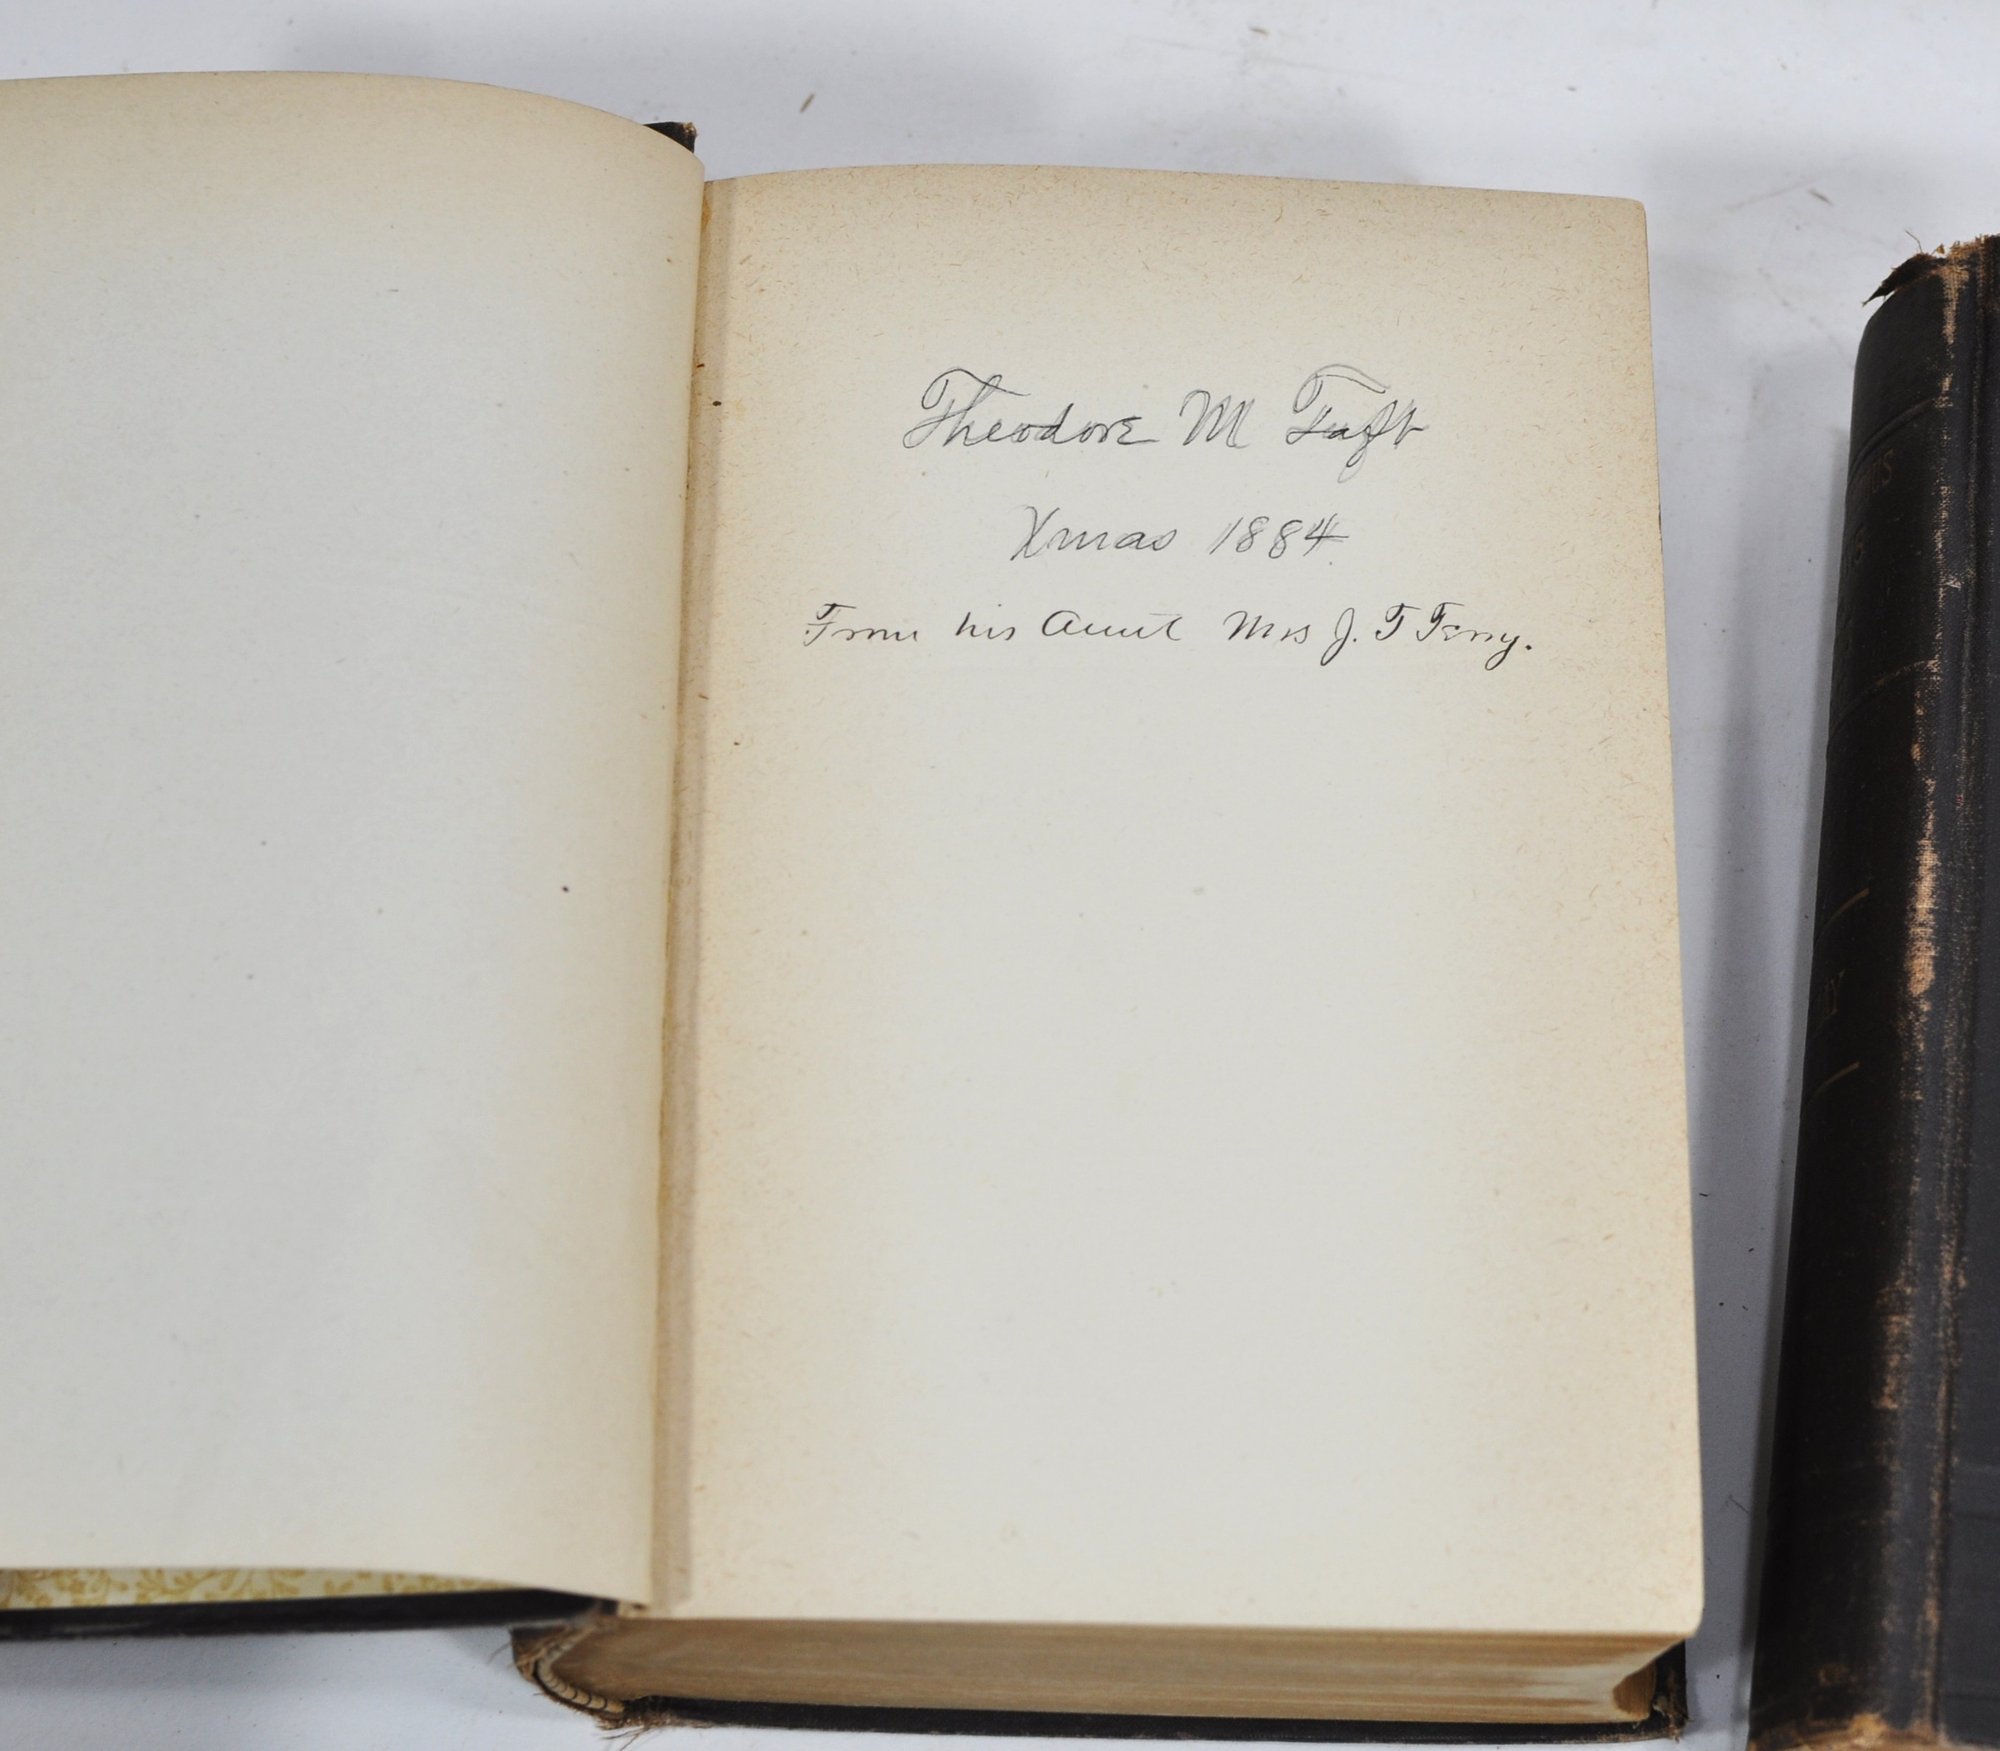 Theodore M Taft
Xmas 1884
From his Aunt Mrs J. T Terry.